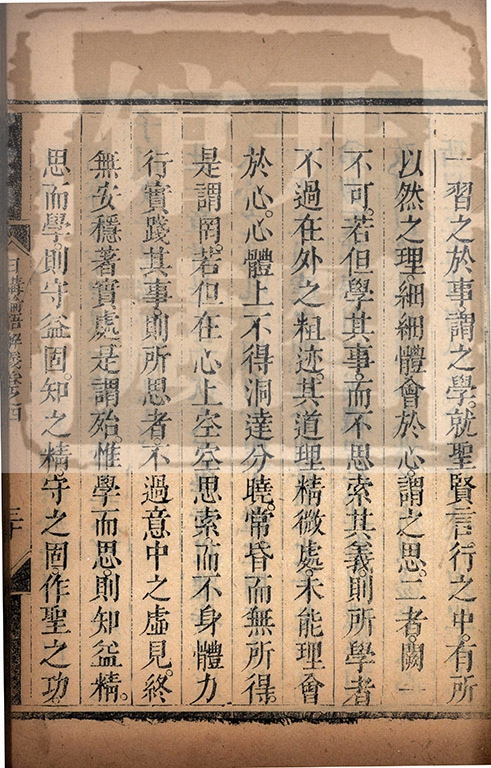 一習之於事謂之學。就聖賢言行之中。有所
以然之理細細體會於心。謂之思。二者。闕一
不可。若但學其事。而不思索其義。則所學者
不過在外之粗迹。其道理精微處。未能理會
於心。心體上不得洞達分曉。常昏而無所得。
是謂罔。若但在心上空空思索而不身體力
行實踐其事。則所思者。不過意中之虛見。終
無安穩著實處。是謂殆。惟學而思。則知益精。
思而學。則守益固。知之精。守之固。作聖之功。
日講四書解義卷之四
三十